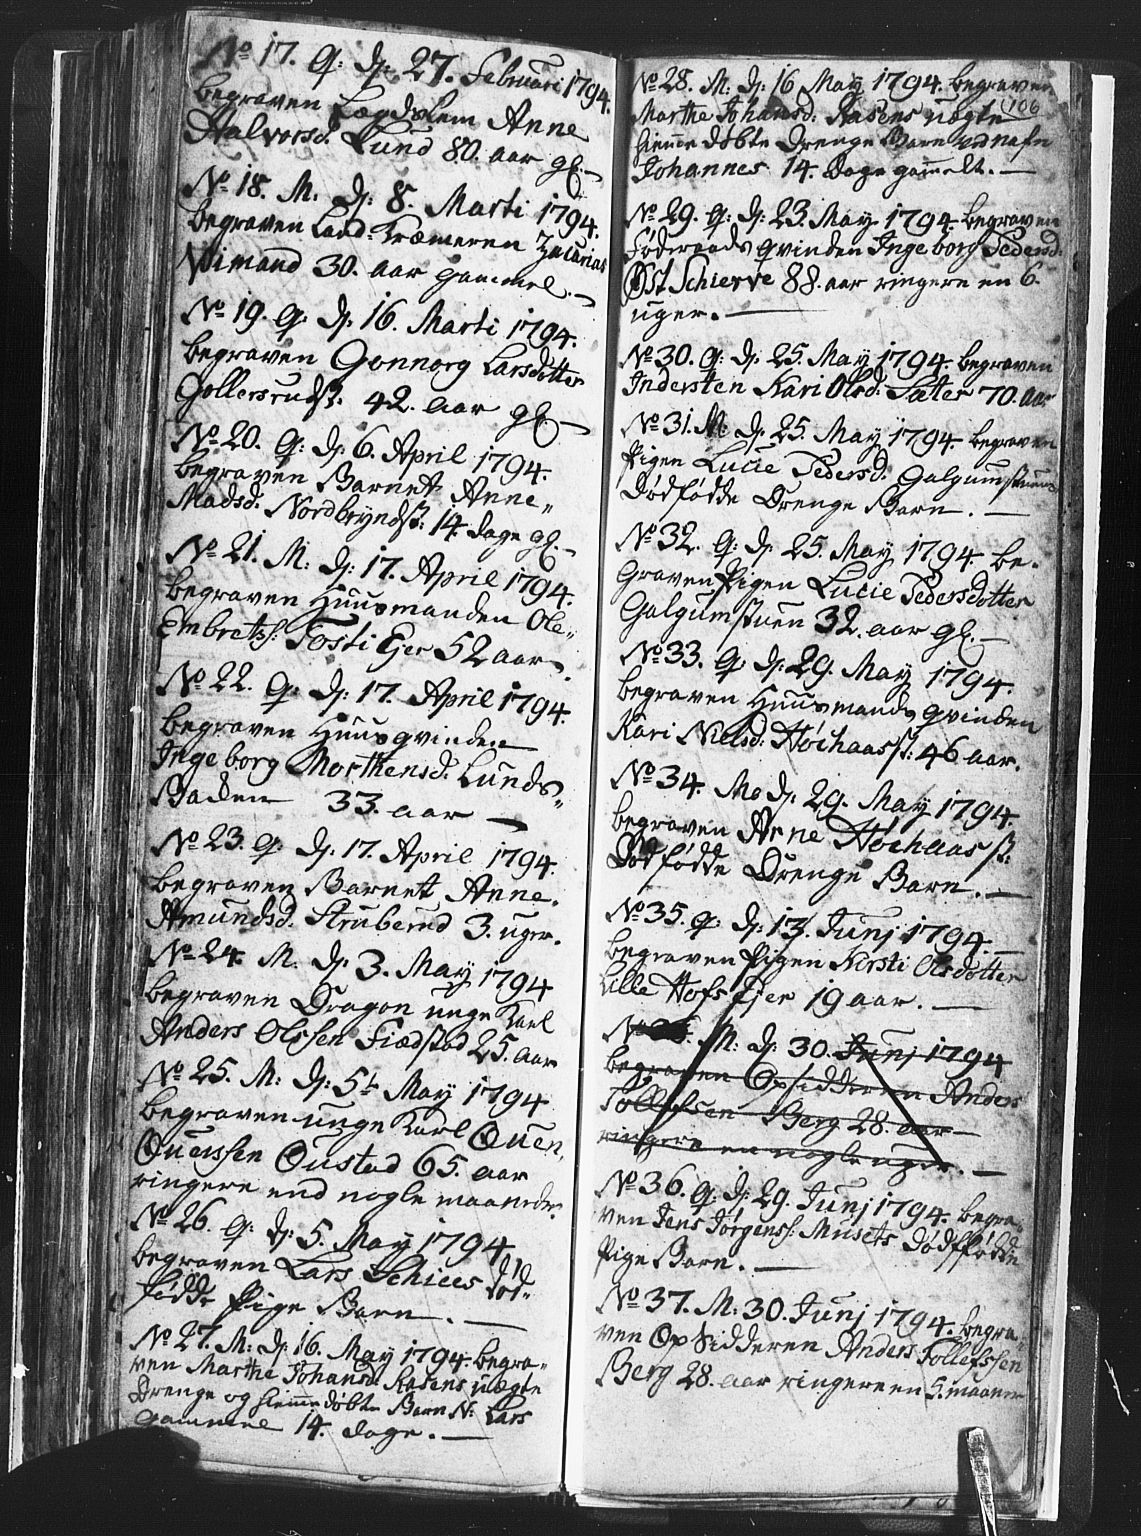 No 17. Q: d: 27. Februari 1794.
begraven Lægdslem Anne
Halvorsd. Lund 80. aar gl.
No 18. M. d: 8. Marti 1794.
begraven Land-Kræmeren Zacarias
Wimand 30. aar gammel.
No 19. Q. d: 16. Marti 1794.
begraven Gonnorg Larsdotter
Gollersrudsß: 42. aar gl.
No 20. Q: d: 6. April 1794.
begraven Barnet Anne
Madsd. Nordbryndsß: 14. dage gl.
No 21. M: d: 17. April 1794.
begraven Huusmanden Ole
Embretss: Tosti Ejer 52 aar.
No 22. Q: d: 17. April 1794.
begraven Huusqvinden
Ingeborg Morthensd. Lunds-
Baden 33. aar
No 23. Q: d: 17. April 1794.
begraven Barnet Anne
Amundsd. Struberud 3. uger.
No 24. M. d: 3. May 1794
begraven Dragon unge Karl
Anders Olssen Fiædstad 25. aar
No 25. M: d: 5t May 1794
begraven unge Karl Ouen
Ouenssen Oustad 65. aar
ringere end nogle maaneder.
No 26. Q: d: 5. May 1794
begraven Lars Schiees død-
fødde Pige Barn.
No 27. M: d: 16. May 1794. begra-
ven Marthe Johansd. Rasens uægte
Drenge og hiemmedøbte Barn N: Lars
gammel 14. dage.
No 28. M: d: 16 May 1794. begraven
106
Marthe Johansd: Rasens uægte
hiemmedøbte Drenge Barn ved nafn
Johannes 14. dage gammelt.
No 29. Q: d: 23. May 1794. begraven
Føderaads qvinden Ingeborg Pedersd:
Øst Schierve 88. aar ringere en 6.
uger.
No 30. Q: d: 25. May 1794. begraven
Indersten Kari Olsd: Sater 70. aar
No 31. M: d: 25. May 1794. begraven
Pigen Lucie Pedersd: Galgumstuens
Dødfødde Drenge Barn.
No 32. Q: d: 25. May 1794. be-
graven Pigen Lucie Pedersdotter
Galgumstuen 32. aar gl.
No 33. Q d: 29. May 1794.
begraven Huusmands qvinden
Kari Nielsd: Høihaasß: 46 aar.
No 34. M: d: 29. May 1794.
begraven Arne Høihaasß:
Dødfødde Drenge Barn.
No 35. Q. d: 13. Junj 1794.
begraven Pigen Kersti Olsdotter
Lille Hofs Ejer 19 aar.
No M: d: 30. Junj 1794
begraven Opsidderen Anders
Tollefsen Berg 28. aar
ringere en nogle uger.
No 36. Q: d: 29. Junj 1794. begra-
ven Jens Jørgenss: Musets dødfødde
Pige Barn.
No 37. M. 30. Junj 1794. begra-
ven Opsidderen Anders Tollefssen
Berg 28. aar ringere en 5. maaner